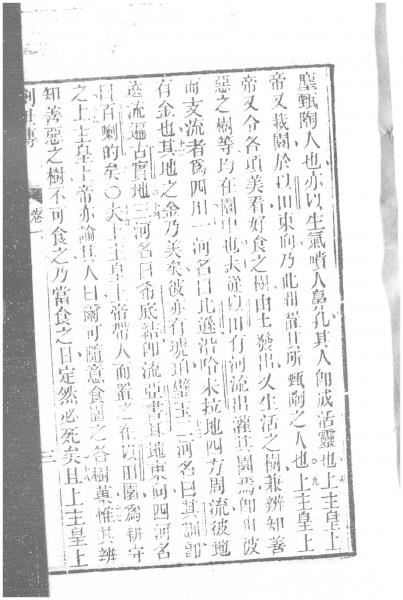 塵甄陶人也亦以生氣噴人鼻孔其人卽成活靈也上主皇上
帝又栽園於以田東向乃此間置其所甄陶之人也上主皇上
帝又令各項美看好食之樹由土發出又生活之樹兼辨知善
惡之樹等均在園中也夫從以田有河流出灌其園焉卽由彼
而支流者爲四川一河名曰比遜沿哈未拉地四方周流彼地
有金也其地之金乃美矣彼亦有琥珀璧玉二河名曰其訓卽
遶流遍古實地三河名曰希底結卽流亞書耳地東向四河名
曰百喇的矣〇夫上主皇上帝帶人而置之希以田園爲耕守
之上主皇上帝亦諭其人曰爾可隨意食園之各樹菓惟其辨
知善惡之樹不可食之乃當食之日定然必死矣且上主皇上
卷一
三